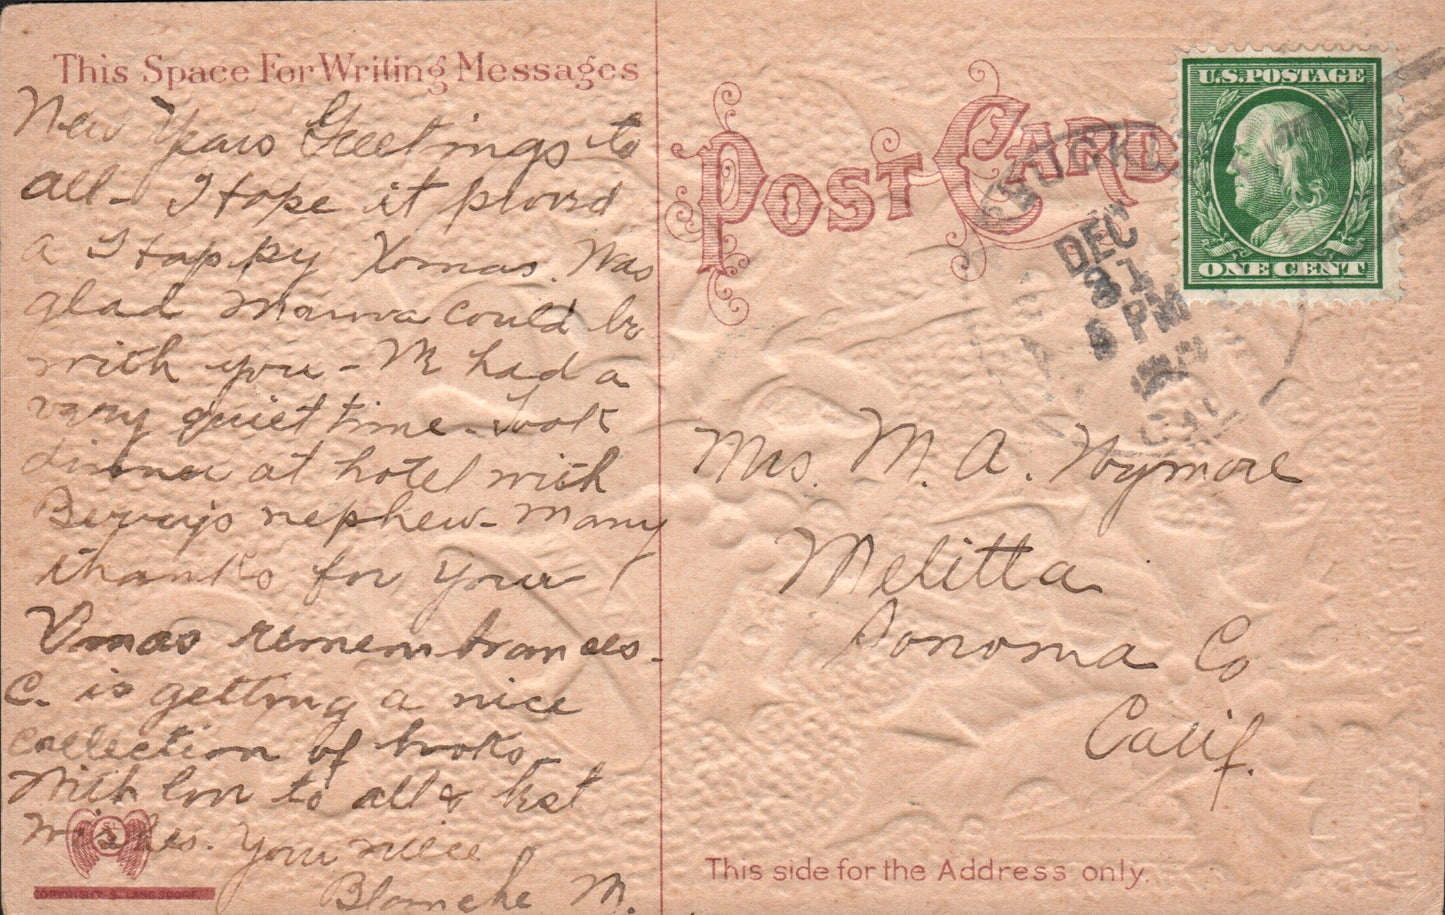 This Space For Writing Messages
New Years Greetings to
all - I hope it proved
a Happy Xmas. Was
glad Mamma could be
with you - We had a
very quiet time - Took
dinner at hotel with
nephew - Many
thanks for your
Xmas remembrances -
C. is getting a nice
collection of books
With love to all & best
wishes. Your niece
Blanche M.
COPYRIGHT S. LANGSDORF
POST CARD
U.S. POSTAGE
ONE CENT
DEC
31
PM
CAL
Mrs. M. A. Wymore
Melitta
Sonoma Co
Calif.
This side for the Address only.